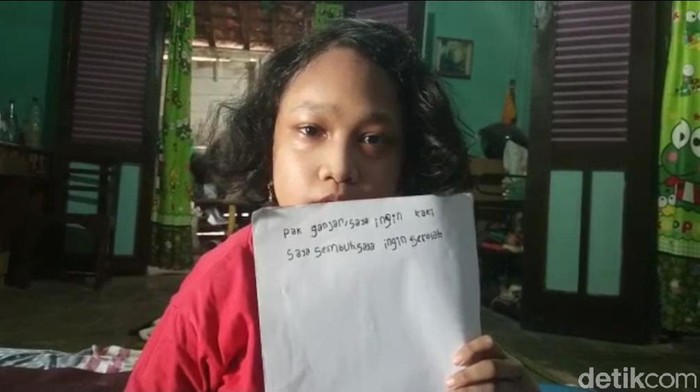 pak ganjar, saya ingin kaki
saya sembuh, saya ingin sekolah
detikcom